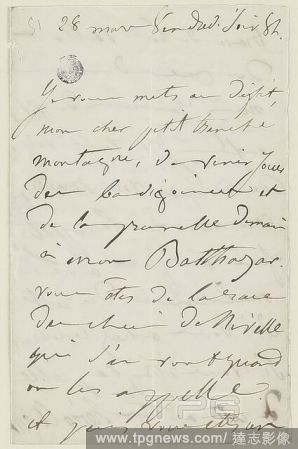 28 mars Vendredi soir 84.
Je vous mets au défit,
mon cher petit tranche
montagne, de venir jouer
des badigoinces et
de la prunelle demain
à mon Balthazar.
vous êtes de la race
du chien de Nivelle
qui s'en vont quand
on les appelle.
et puis vous
TPG
www.tpgnews.com / 達志影像